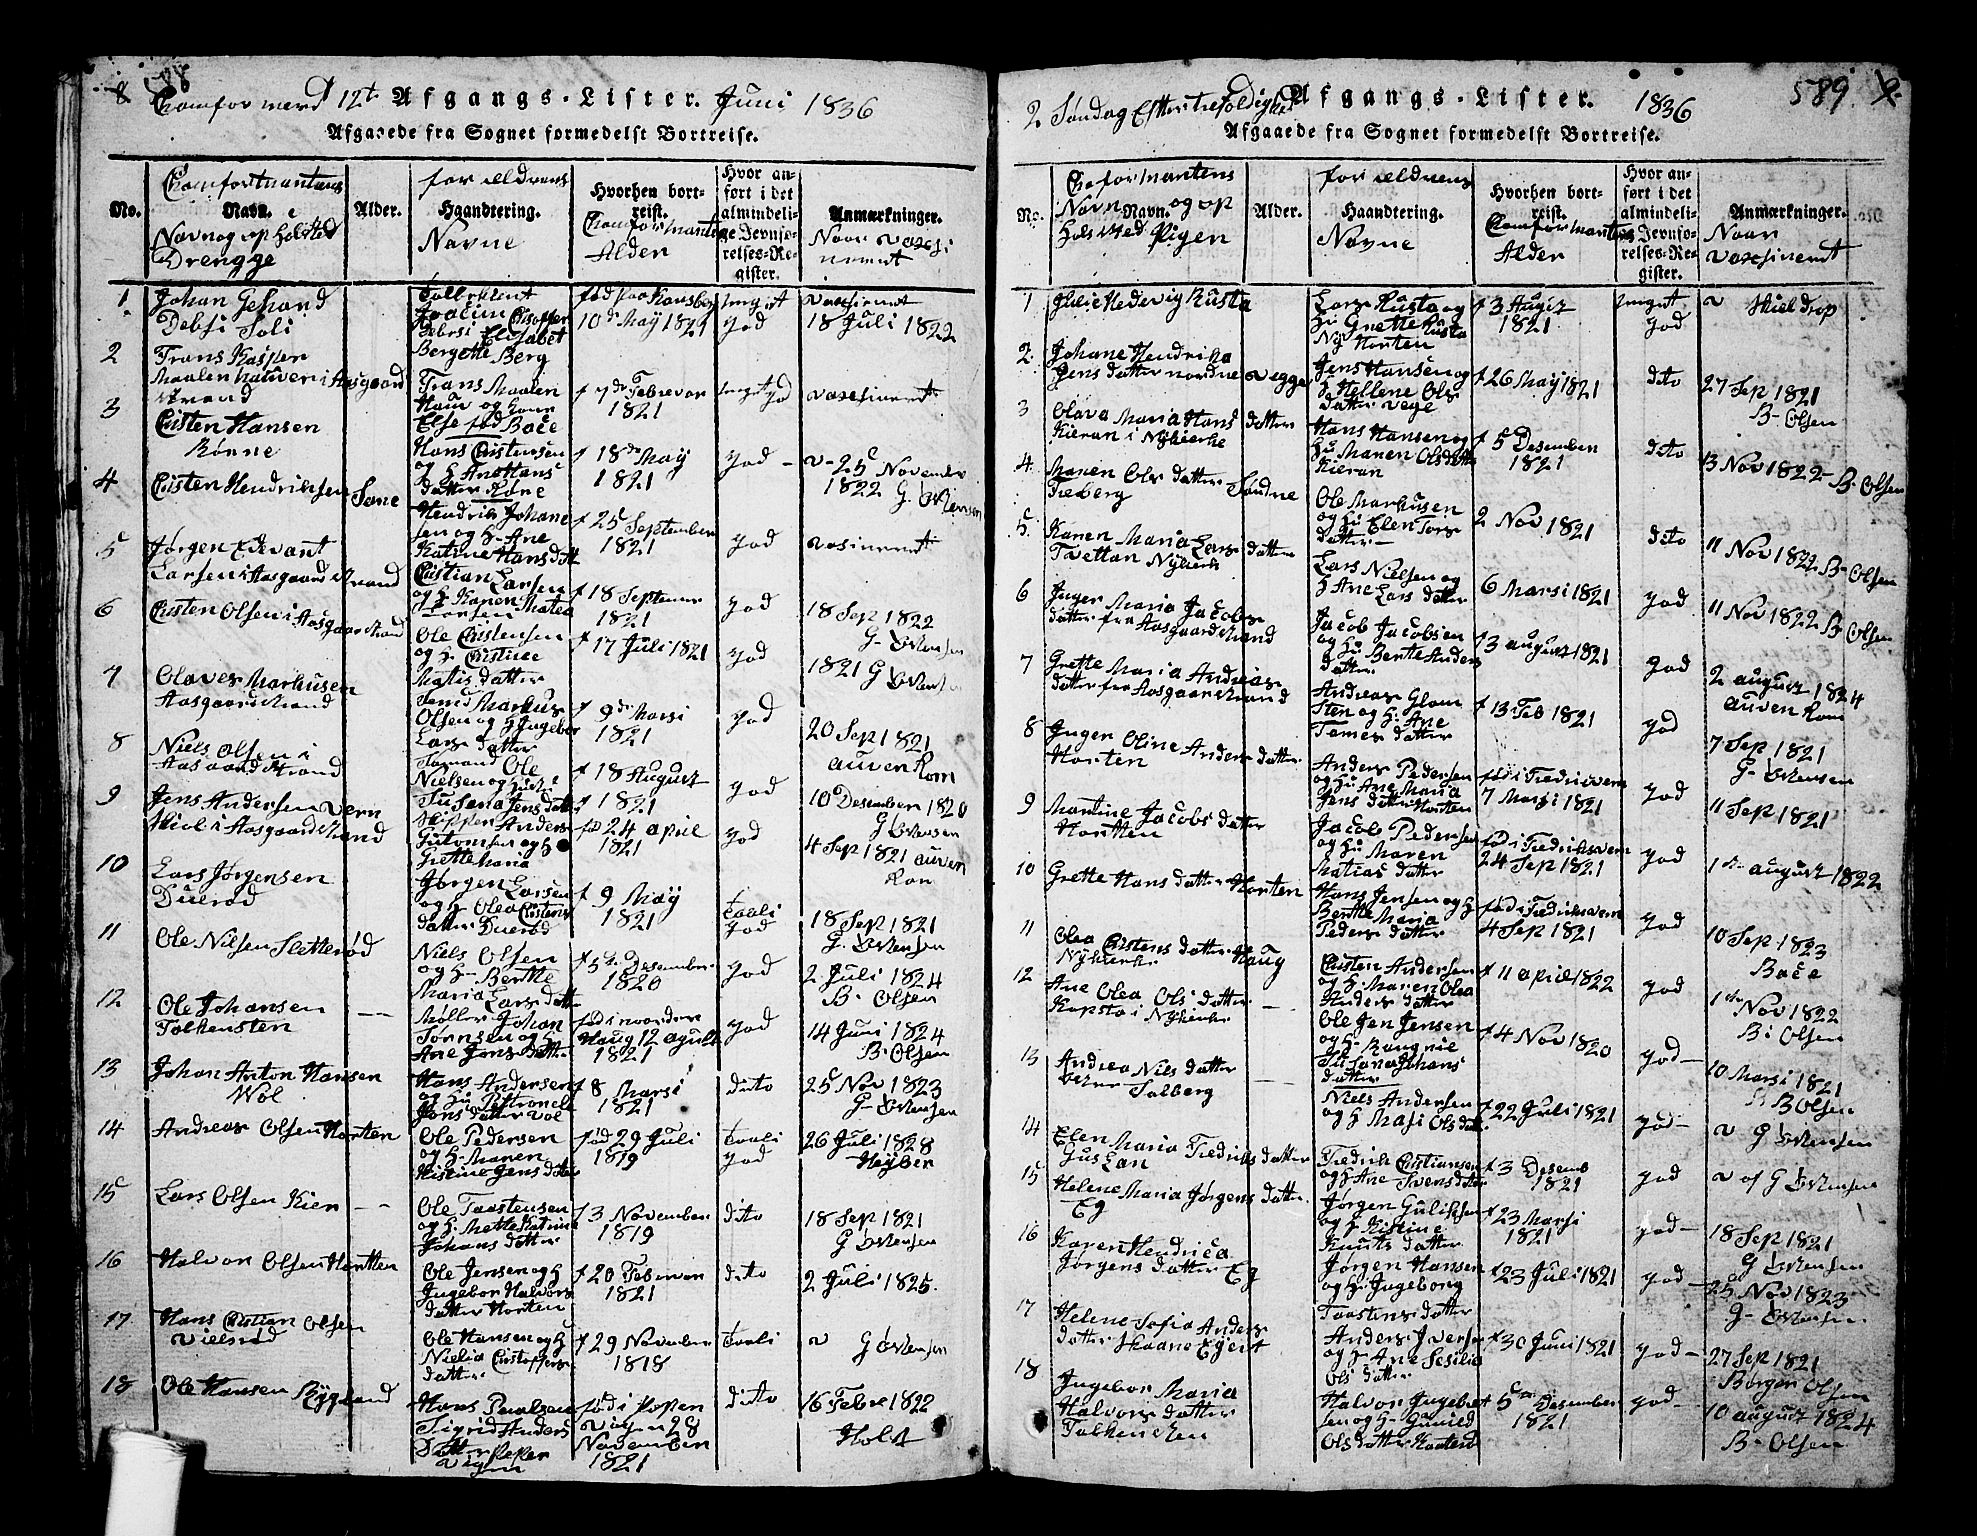 8 588
Chomformerd 12te Afgangs-Lister. Juni 1836
Afgaaede fra Sognet formedelst Bortreise.
No. Chomformantens Navn. Navn og opholsted Drengge
Alder.
foraldrens Haandtering. Navne
Hvorhen bortreist. Chomformantens Alder
Hvor anført i det almindelige Jevnførelses-Register.
Anmærkninger. Naar vaxsinernt
1 Johan Gehard Debsi Joli
Tolbetient Joacim Chrisoffer Debesi Elisabet Bergette Berg
fød paa Konsberg 10de Maÿ 1821
meget god
vaxsinernt 18 Juli 1822
2 Frans Kasper Maalen Hauver i Aasgaard strand
Frans Maalen Hauv og Hone Else fød Boce
f 7de Febrevar 1821
meget god
vaxsinernt
3 Cristen Hansen Rønne
Hans Christensen og H. Ane Hans datter Røne
f 18de Maÿ 1821
god
v- 25 November 1822 G. Ostensen
4 Cristen Hendriksen Sane
Hendrik Johanesen og H- Ane Katrine Hans datt
f 25 September 1821
god
vasinernt
5 Jørgen Edevant Larsen i Aasgaardstrand
Cristian Larsen og H- Karen Matea Larsen
f 18 September 1821
god
18 Sep 1822 G- Ostensen
6 Cristen Olsen i Aasgaardstrand
Ole Cristensen og H. Cristine Matis datter
f 17 Juli 1821
god
1821 G Ostensen
7 Olaves Markusen Aasgaardstrand
Markus Olsen og H Ingebor Lars datter
f 9de Marsi 1821
god
20 Sep 1821 auven Rom
8 Niels Olsen i Aasgaardstrand
Ole Nielsen og Susana Jens datter
f 18 August 1821
god
10 Desember 1820 G Ostensen
9 Jens Andersen vern Kiel i Aasgaardstrand
Skipper Anders Gutomsen og H Grette Maria
fød 24 april 1821
god
4 Sep 1821 auven Ron
10 Lars Jørgensen Duerød
Jørgen Larsen og H. Olea Cristens datter Duerød
f 9 Maÿ 1821
taali god
18 Sep 1821 G. Ostensen
11 Ole Nilsen Sletterød
Niels Olsen og H- Berthe Maria Lars datter
f 5te Desember 1820
god
2 Juli 1824 B- Olsen
12 Ole Johansen Falkensten
Møller Johan Tørnsen og H. Ane Jens datter
fød i noordre Haug 12 agust 1821
god
14 Juni 1824 B. Olsen
13 Johan Anton Hansen Wol
Hans Andersen og Hu Pettronele Jons datter vol
f 8 Marsi 1821
dito
25 Nov 1823 G- Ostensen
14 Andreas Olsen Horten
Ole Pedersen og H. Maren Kistine Jens datter
fød 29 Juli 1819
taali god
26 Juli 1828 Heÿber
15 Lars Olsen Kier
Ole Taastensen og H. Mette Katrine Johans datter
f 3 November 1819
dito
18 Sep 1821 G Ostensen
16 Halvor Olsen Hortten
Ole Jensen og H Ingebor Halvors datter Horten
f 20 Febervar 1821
dito
2 Juli 1825.
17 Hans Cristian Olsen Vielsrød
Ole Hansen og H Nielia Cristoffers datter
f 29 November 1818
taali
v G Ostensen
18 Ole Hansen Bÿgland
Hans Paulsen Sigrid Anders datter Peper vigen
fød i Peper vigen 28 November 1821
dito
16 Febr 1822 Holst
2 Søndag Efter trefoldighet Afgangs-Lister. 1836 589
Afgaaede fra Sognet formedelst Bortreise.
No. Choformantens Navn. Navn og op holssted Pigen
Alder.
foraldrens Haandtering. Navne
Hvorhen bortreist. Chomformantens Alder
Hvor anført i det almindelige Jevnførelses-Register.
Anmærkninger. Naar vaxsinernt
1 Julie Hedevig Rusta
Lars Rusta og Hu Grette Rusta Nÿ Horten
f 3 August 1821
meget god
v Skieldrop
2. Johane Hendrika Jens datter nordre vegge
Jens Hansen og H Hellene Ols datter vege
f 26 Maÿ 1821
dito
27 Sep 1821 B- Olsen
3 Olava Maria Hans datter Kieran i Nÿkierke
Hans Hansen og Hu Maren Ols datter Kieran
f 5 Desember 1821
dito
13 Nov 1822- B. Olsen
4. Maren Ols datter Søndre Freberg
Ole Markusen og Hu Elen Tors datter
2 Nov 1821
dito
11 Nov 1822 B- Olsen
5. Karen Maria Lars datter Tvettan Nÿkierk
Lars Nielsen og H Ane Lars datter
6 Marsi 1821
god
11 Nov 1822 B- Olsen
6 Inger Maria Jacobs datter fra Aasgaardstrand
Jacob Jacobsen og Hu Berthe Anders datter
f 3 august 1821
god
2 august 1824 auven Rom
7 Grette Maria Andreas datter fra Aasgaarstrand
Andreas Glomsten og H. Ane Tomes datter
f 13 Feb 1821
god
7 Sep 1821 G- Ostensen
8 Inger Oline Anders datter Horten
Anders Pedersen og Hu Ane Maria Jens datter Horten
fød i Fredricsvern 7 Marsi 1821
god
11 Sep 1821
9 Martine Jacobs datter Hortten
Jacob Pedersen og Hu Maren Matias datter
fød i Fredriksvern 24 Sep 1821
god
1ste august 1822
10 Grette Hans datter Horten
Hans Jensen og H Berthe Maria Peders datter
fød i Fredriksvern 4 Sep 1821
god
10 Sep 1823 Boce
11 Olea Cristens datter Haug Nÿkierke
Cristen Andersen og H. Maren Olea Anders datter
f 11 april 1822
god
1ste Nov 1822 B. Olsen
12 Ane Olea Ols datter Kopstø i Nÿkierke
Ole Jen Jensen og H- Ragnil Susana Johans datter
f 4 Nov 1820
god
10 Marsi 1821 B Olsen
13 Andrea Niels datter Solberg
Niels Andersen og H Masi Ols datt
f 22 Juli 1821
god
v G Ostensen
14 Elen Maria Fredriks datter Guslan
Fredrik Cristiansen og H Ane Svens datter
f 3 Desemb 1821
god
v af G Ostensen
15 Helene Maria Jørgens datter Eg
Jørgen Guliksen og H Kistine Knuts datter
f 23 Marsi 1821
god
18 Sep 1821 G Ostensen
16 Karen Hendrica Jørgens datter Eg
Jørgen Hansen og H. Ingeborg Taastens datter
f 23 Juli 1821
god
25 Nov 1823 G- Ostensen
17 Helene Sofia Anders datter Skaane Egert
Anders Iversen og H- Ane Sesilia Ols datter
f 30 Juni 1821
god
27 Sep 1821 Borger Olsen
18 Ingebor Maria Halvors datter Falkensten
Halvor Ingebretsen og H- Gunild Ols datter
5te Desember 1821
god
10 august 1824 B- Olsen